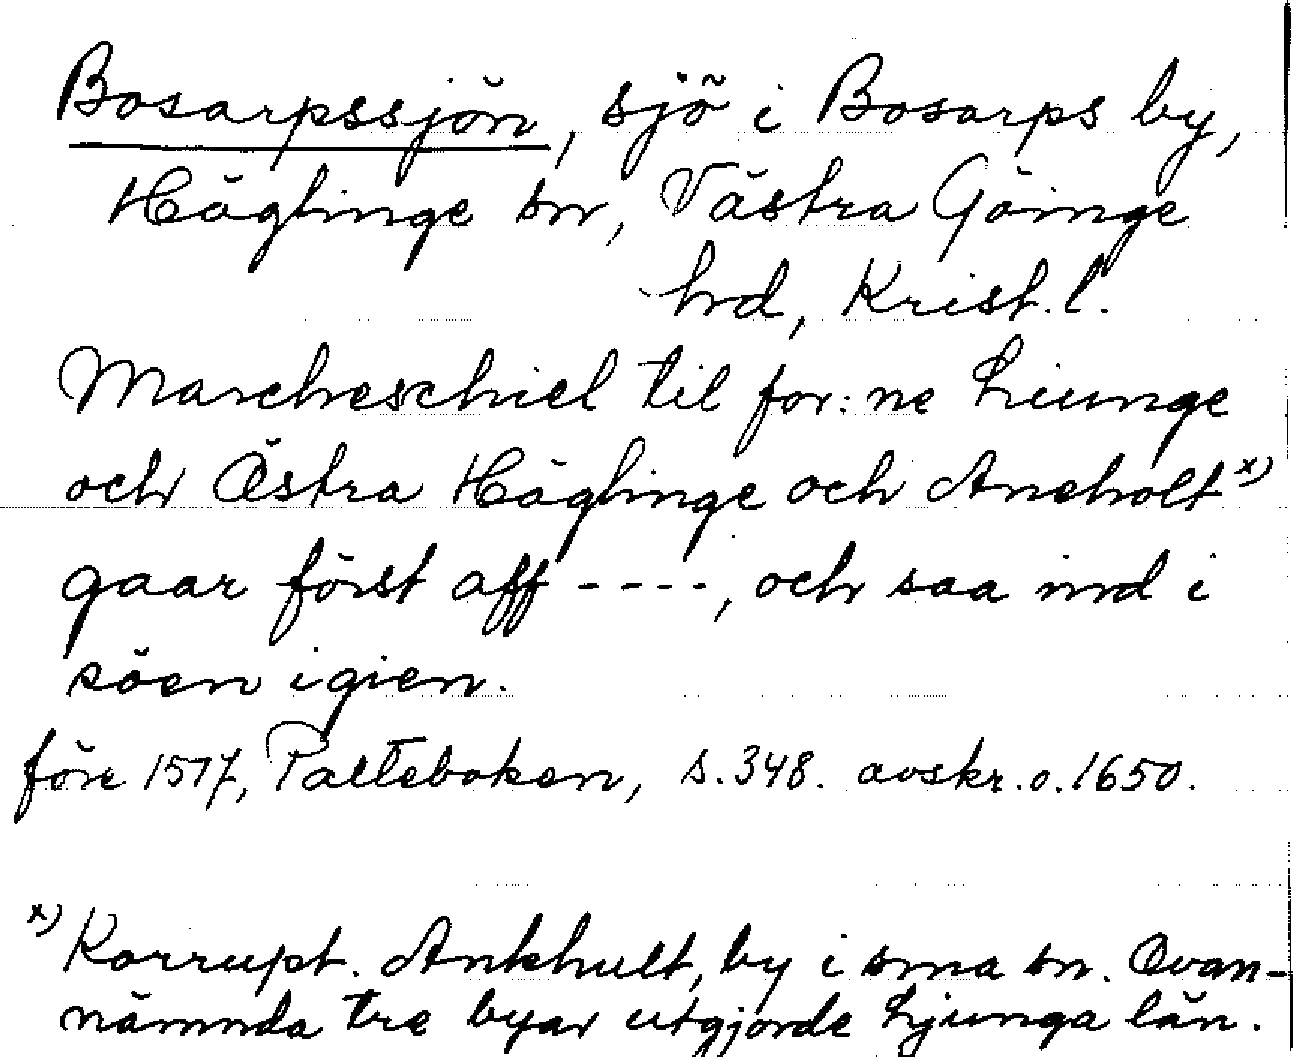 Bosarpssjön, sjö i Bosarps by,
Häglinge sn, Västra Göinge
hrd, Krist. l.
Marcheschiel til for:ne Liunge
och Östra Häglinge och Aneholt x)
gaar först aff ----, och saa ind i
söen igien.
före 1517, Palteboken, s. 348. avskr. o. 1650.
x) Korrupt. Ankhult, by i sma sn. Ovan-
nämnda tre byar utgjorde Ljunga län.